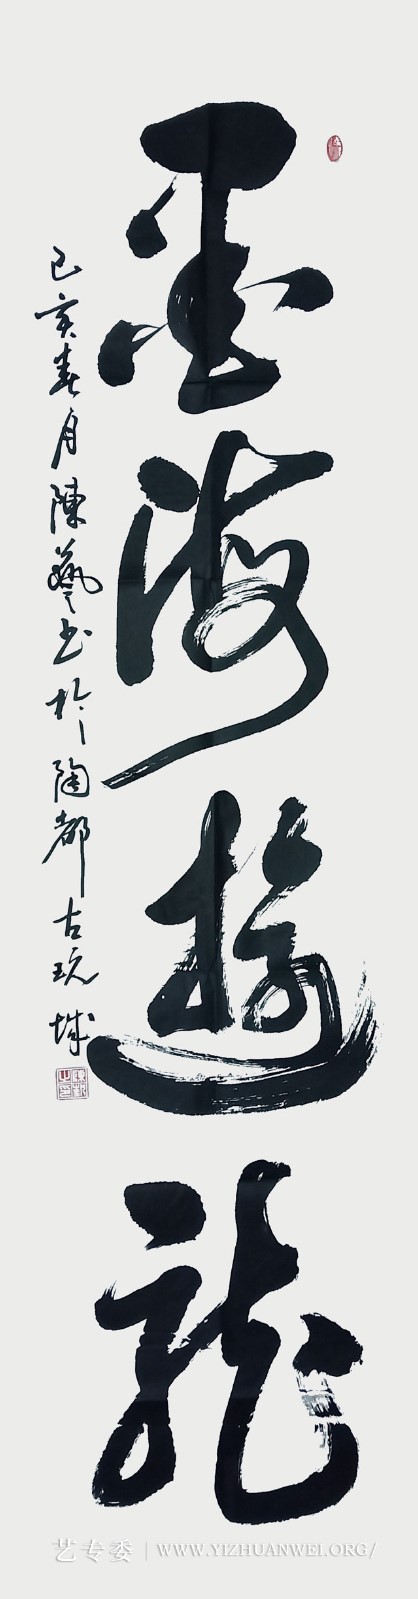 墨海遊龍
己亥春月陳藝书於陶都古玩城
艺专委 | WWW.YIZHUANWEI.ORG/